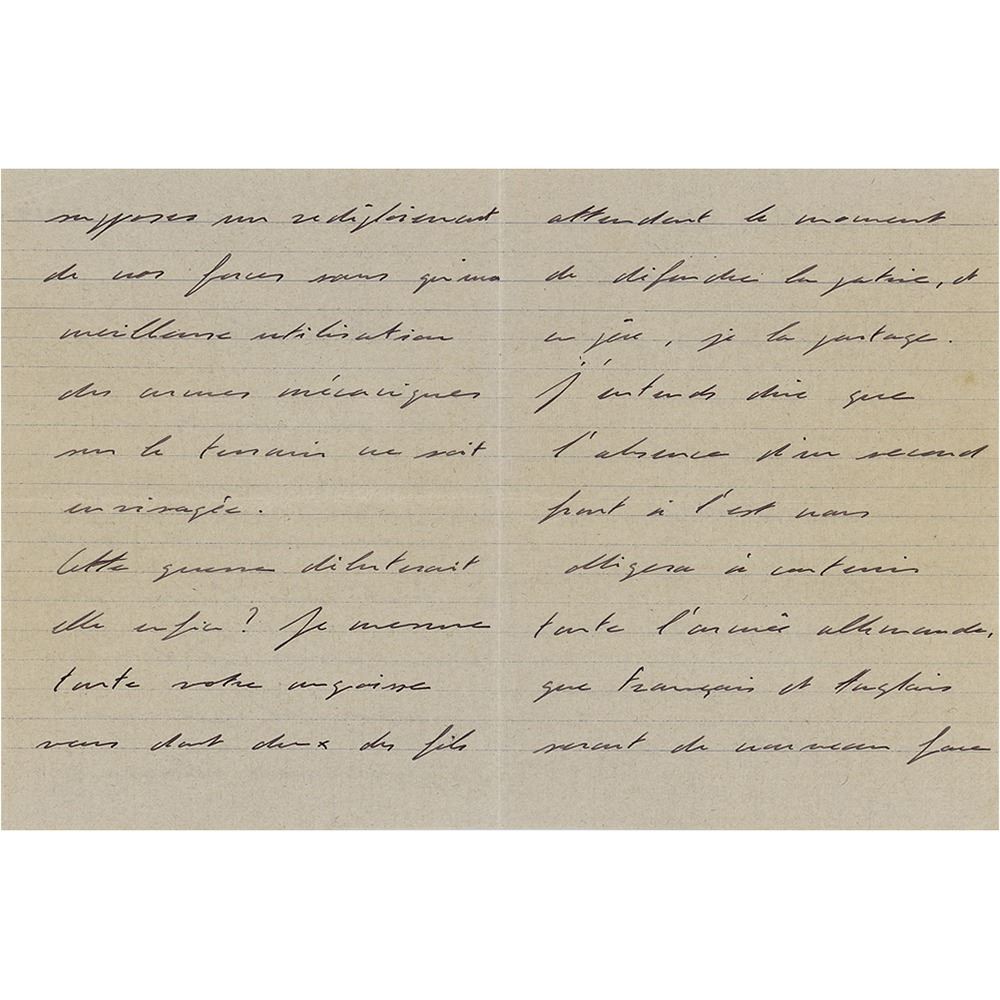 supposer un redéploiement
de nos forces sans qu'une
meilleure utilisation
des armes mécaniques
sur le terrain ne soit
envisagée.
Cette guerre débuterait
elle enfin ? Je mesure
toute votre angoisse
vous dont deux des fils
attendent le moment
de défendre la patrie, et
en père, je la partage.
J'entends dire que
l'absence d'un second
front à l'est nous
obligera à contenir
toute l'armée allemande,
que Français et Anglais
seront de nouveau face